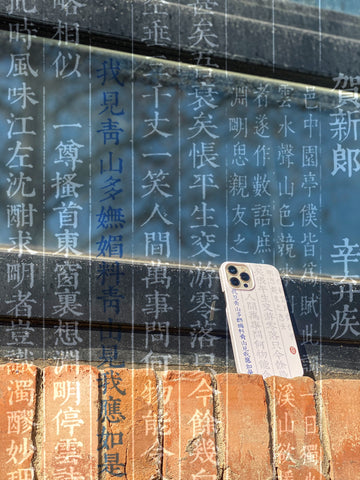 賀新郎 辛弃疾
邑中園亭僕皆為賦此 一日獨
雲水聲山色競 溪山欲援
者遂作數語庶
淵明思親友之
甚矣吾衰矣悵平生交游零落只今餘幾白
垂三千丈一笑人間萬事問何物能令
我見青山多嫵媚料青山見我應如是
略相似一尊搔首東窗裏想淵明停雲詩
此時風味江左沈酣求名者豈識濁醪妙理
我見青山多嫵媚料青山見我應如是